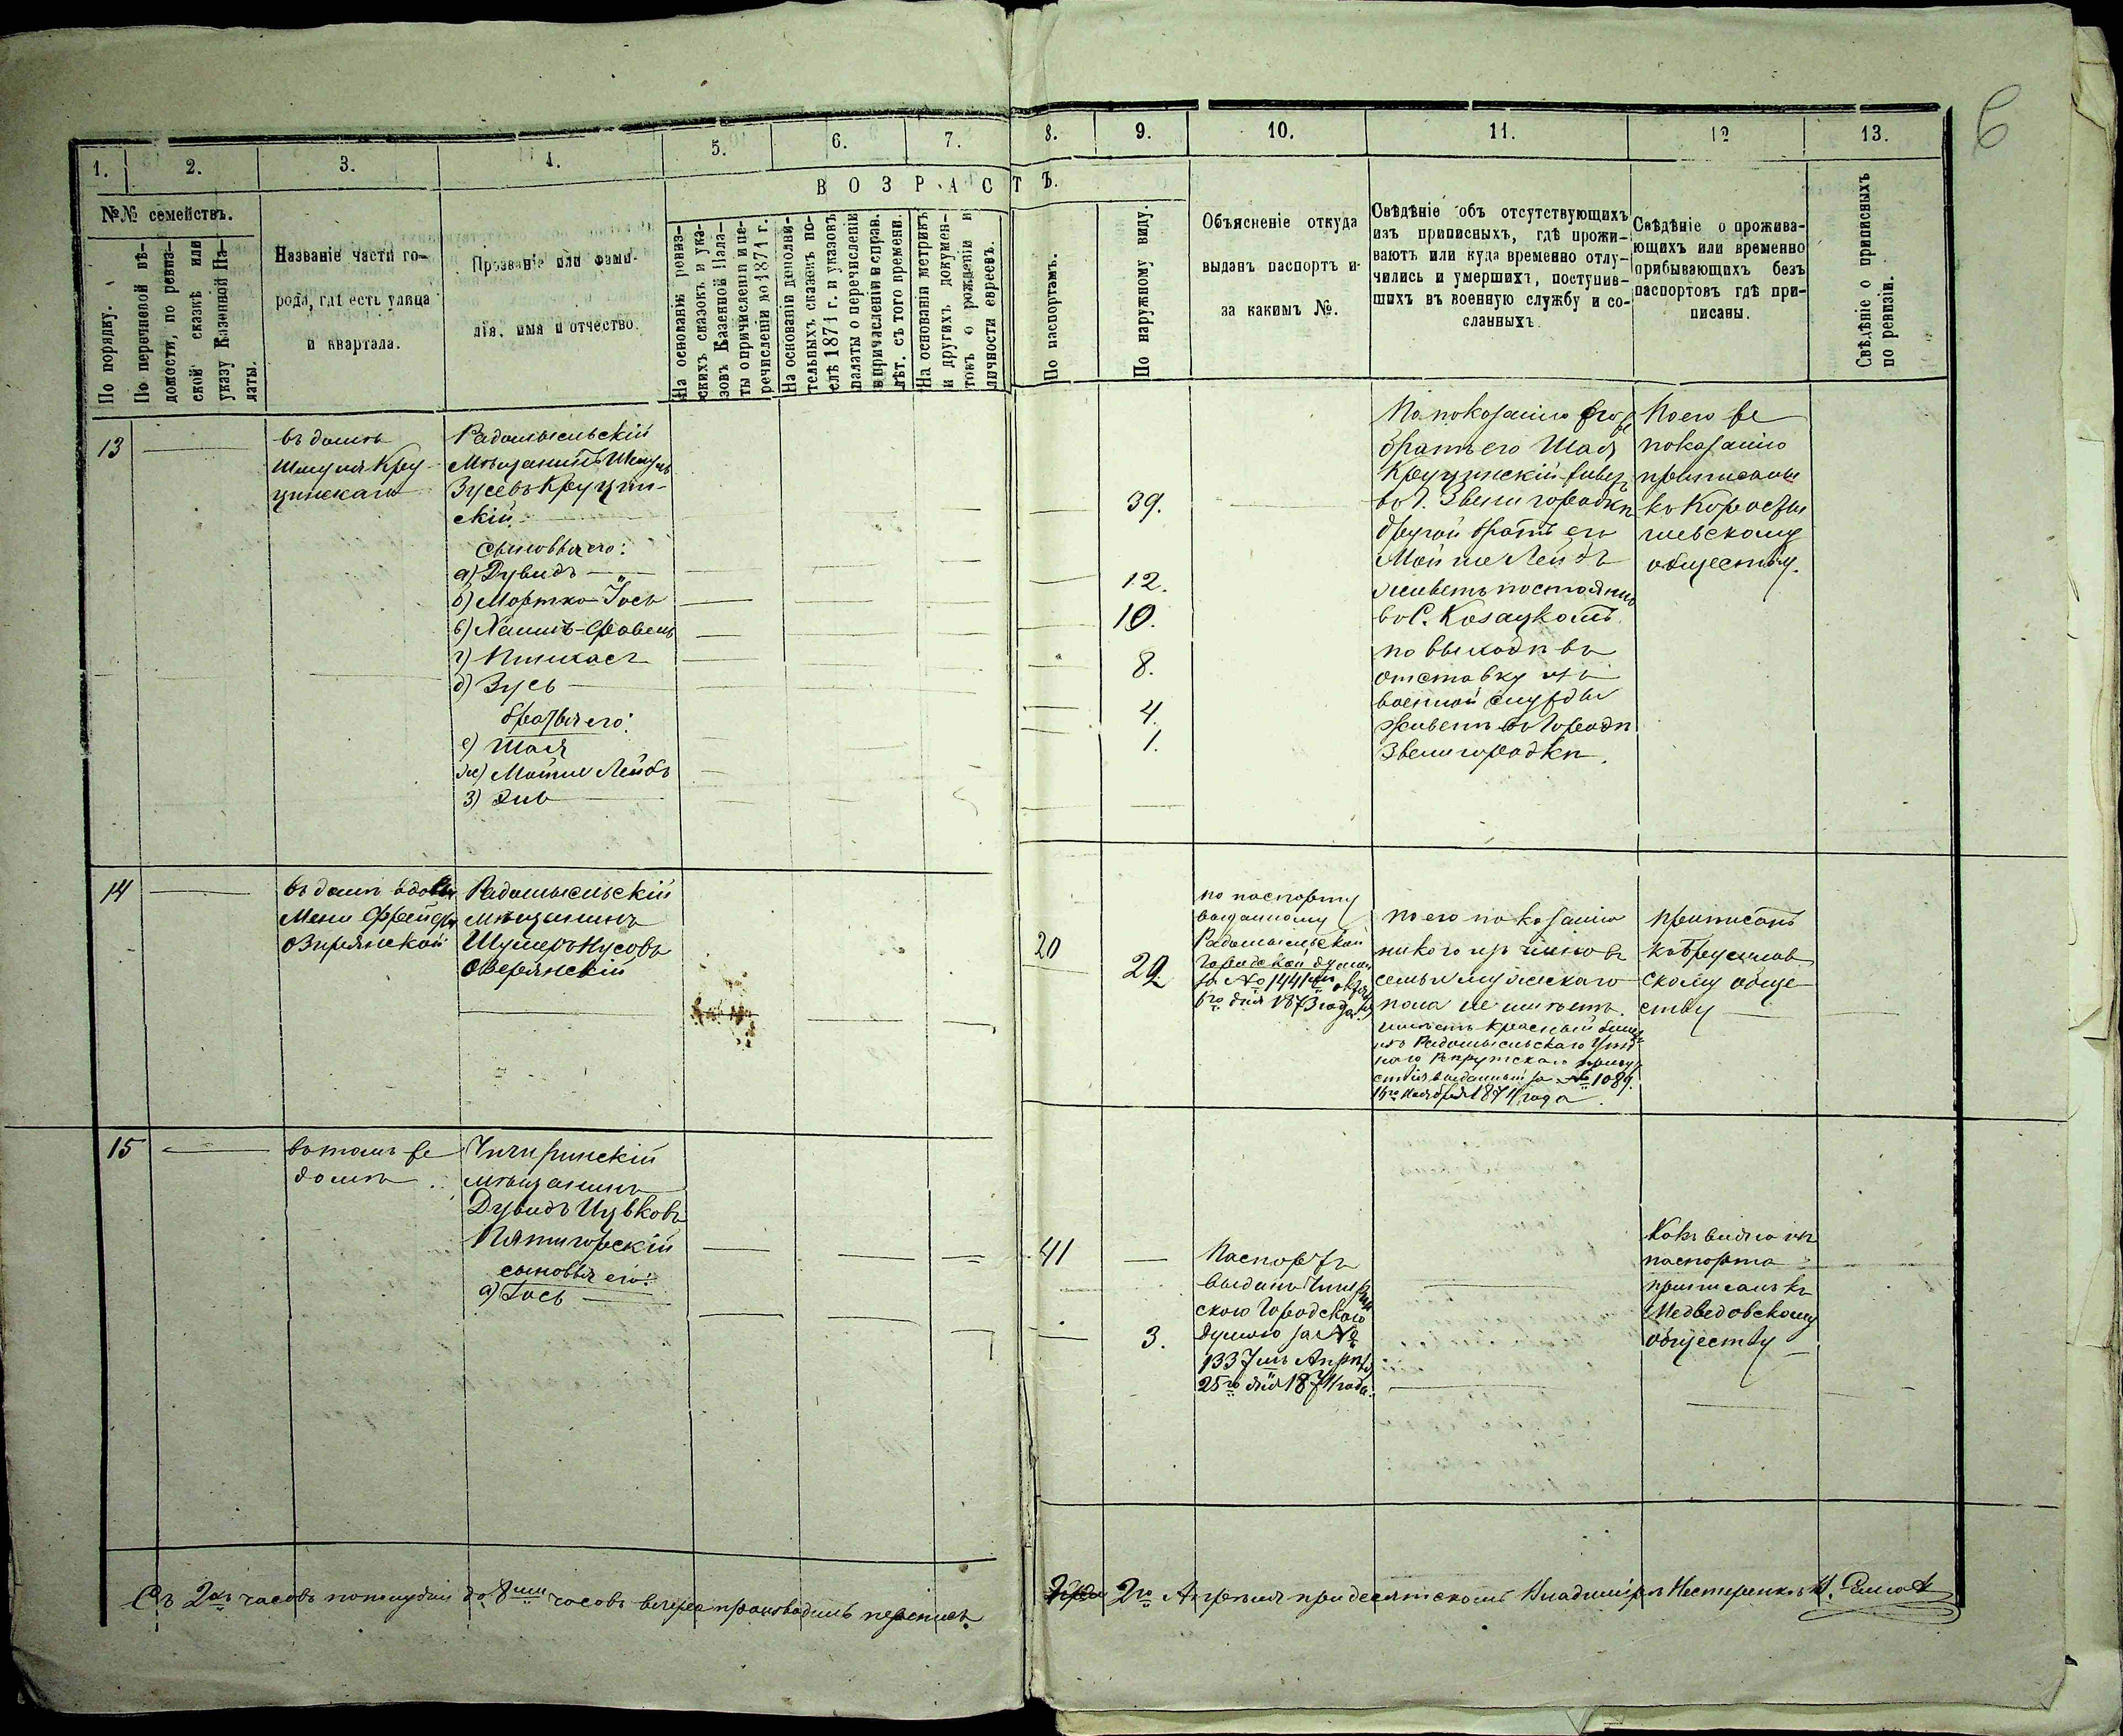 6
1.
2.
3.
4.
5.
6.
7.
8.
9.
10.
11.
12
13.
ВОЗРАСТЪ.
№№ семействъ.
По порядку.
По перечневой вѣ-
домости, по ревиз-
ской сказкѣ или
указу Казенной Па-
латы.
Названіе части го-
рода, гдѣ есть улица
и квартала.
Прозваніе или фами-
лія, имя и отчество.
На основаніи ревиз-
скихъ сказокъ и ука-
зовъ Казенной Пала-
ты о причисленіи и пе-
речисленіи по 1871 г.
На основаніи дополни-
тельныхъ сказокъ по-
слѣ 1871 г. и указовъ
палаты о перечисленіи
и причисленіи и справ.
лѣт. съ того времени.
На основаніи метрикъ
и другихъ докумен-
товъ о рожденіи и
личности евреевъ.
По паспортамъ.
По наружному виду.
Объясненіе откуда
выданъ паспортъ и
за какимъ №.
Свѣдѣніе объ отсутствующихъ
изъ приписныхъ, гдѣ прожи-
ваютъ или куда временно отлу-
чились и умершихъ, поступив-
шихъ въ военную службу и со-
сланныхъ.
Свѣдѣніе о прожива-
ющихъ или временно
прибывающихъ безъ
паспортовъ гдѣ при-
писаны.
Свѣдѣніе о приписныхъ
по ревизіи.
13
въ домѣ
Шмуля Кру-
цинскаго
Радомысльскій
Мѣщанинъ Шмуль
Зусевъ Круцин-
скій
сыновья его:
а) Дувидъ
б) Мортко Іось
в) Хаимъ-
г) Пинхасъ
д) Зусь
братья его:
е) Шая
ж) Мойше Лейбъ
з)
39.
12.
10.
8.
4.
1.
По показанію его же
братъ его Шая
Круцинскій живетъ
въ г. Звенигородкѣ
другой братъ его
Мойше Лейбъ
живетъ постоянно
въ С. Козацкомъ
по выходѣ въ
отставку изъ
военной службы
живетъ въ Городѣ
Звенигородкѣ.
По его же
показанію
приписаны
къ Коросты-
шевскому
обществу.
14
въ домѣ вдовы
Мени Фрейды
Озирянской
Радомысльскій
мѣщанинъ
Шулимъ Нусовъ
Озерянскій
20
29
по паспорту
выданному
Радомысльской
Городской думою
за № 1441
6го дня 1873 года
по его показанію
никого изъ членовъ
семьи мужескаго
пола не имѣетъ.
имѣетъ красный билетъ
изъ Радомысльскаго Уѣзд-
наго Рекрутскаго присут-
ствія выданный за № 1089.
16го Ноября 1871 года.
приписанъ
къ Брусилов-
скому обще-
ству
15
въ томъ же
домѣ
Чигиринскій
мѣщанинъ
Дувидъ Ицьковъ
Пятигорскій
сыновья его:
а) Іось
41
3.
Паспортъ
выданъ Чигирин-
скою Городскою
думою за №
1337мъ Апрѣля
25го дня 1871 года.
Какъ видно изъ
паспорта
приписанъ къ
Медведовскому
обществу
Съ 2хъ часовъ пополудни до 8ми часовъ вечера производилъ перепись
2го Апрѣля при десятскомъ Владимірѣ Нестеренкѣ